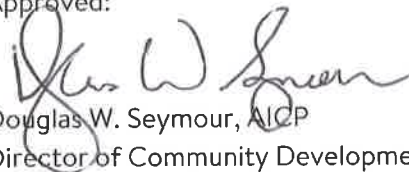 Approved:
Douglas W. Seymour, AICP
Director of Community Developme